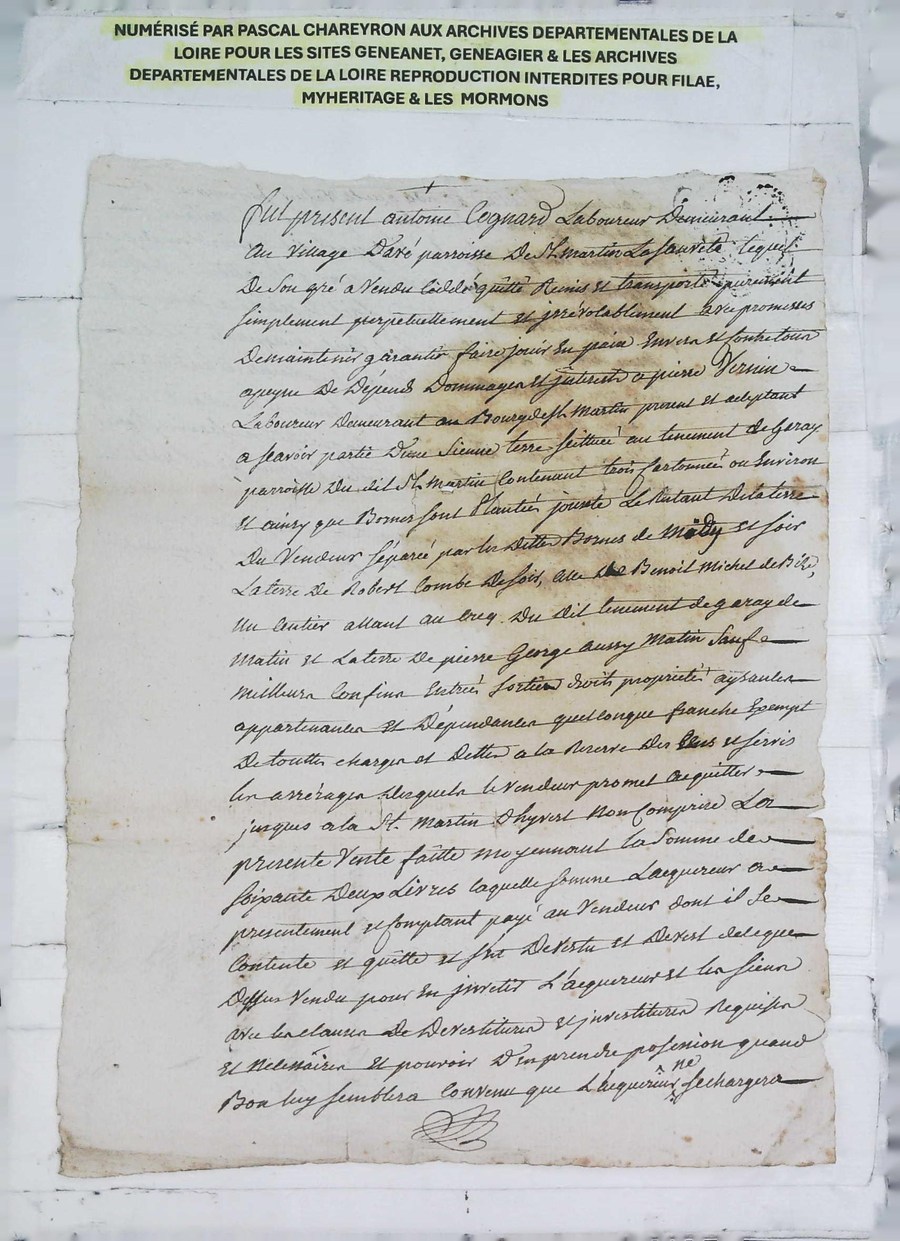 NUMÉRISÉ PAR PASCAL CHAREYRON AUX ARCHIVES DEPARTEMENTALES DE LA
LOIRE POUR LES SITES GENEANET, GENEAGIER & LES ARCHIVES
DEPARTEMENTALES DE LA LOIRE REPRODUCTION INTERDITES POUR FILAE,
MYHERITAGE & LES MORMONS
fut present antoine Cognard Laboureur Demeurant
au village D'avé parroisse De St martin La sauveté lequel
De son gré a vendu Céddé quitté Remis et transporté purement
simplement perpetuellement et irrévolablement avec promesses
De maintenir garantir faire jouir En paix Envers et contre tous
apeyne De Dépends Dommages et jnterests a pierre Vernin
Laboureur Demeurant au Bourg de St Martin present et acceptant
a sçavoir partie D'une sienne terre scittuée au tenement de Garay
parroisse Du dit St Martin Contenant trois cartonnées ou Environ
et ainsy que Bornes sont Plantées jouxte Le Restant De la terre
Du Vendeur séparée par les Dittes Bornes de Midy et soir
La terre De Robert Combe De soir, celle De Benoit Michel de Bize,
un sentier allant au Dit tenement de garay de
Matin et La terre De pierre George aussy Matin Sauf
Meilleurs Confins Entrées sorties droits propriétés aysances
appartenances et Dépendances quelconque franche Exempt
De touttes charges et Dettes a la Reserve Des Cens et servis
les arrérages desquels le vendeur promet acquitter
jusques a la St. Martin D'hyvert Non Comprise La
presente Vente faitte moyennant la somme de
soixante Deux Livres laquelle somme L'acquereur a
presentement et comptant payé au Vendeur dont il se
Contente et quitte et s'est Devestu et Devest de ce que
Dessus Vendu pour En jnvestir L'acquereur et les siens
avec les clauses De Devestitures et jnvestitures Requises
et Nécessaires et pouvoir D'en prendre possession quand
Bon luy semblera Convenu que L'acquereur ne se chargera